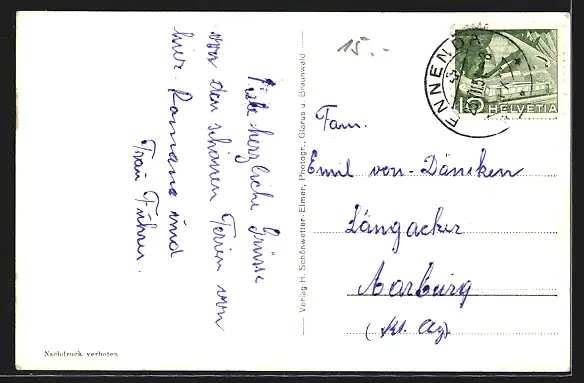 15.-
Viele herzliche Grüsse
von den schönen Ferien von
hier. Romana und
Frau Führer.
Verlag H. Schönwetter-Elmer, Photogr., Glarus u. Braunwald
ENNENDA
15 HELVETIA
Fam.
Emil von-Däniken
Längacker
Aarburg
(Kt. Ag).
Nachdruck verboten